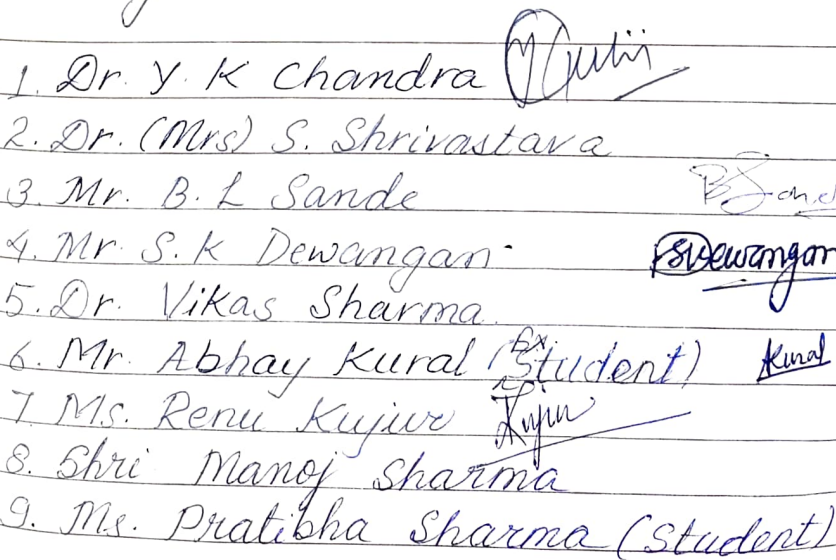 1. Dr. Y. K Chandra
2. Dr. (Mrs) S. Shrivastava
3. Mr. B. L Sande
4. Mr. S. K Dewangan SDewangan
5. Dr. Vikas Sharma
6. Mr. Abhay Kural (Ex. Student) Kural
7. Ms. Renu Kujur Kujur
8. Shri Manoj Sharma
9. Ms. Pratibha Sharma (Student)